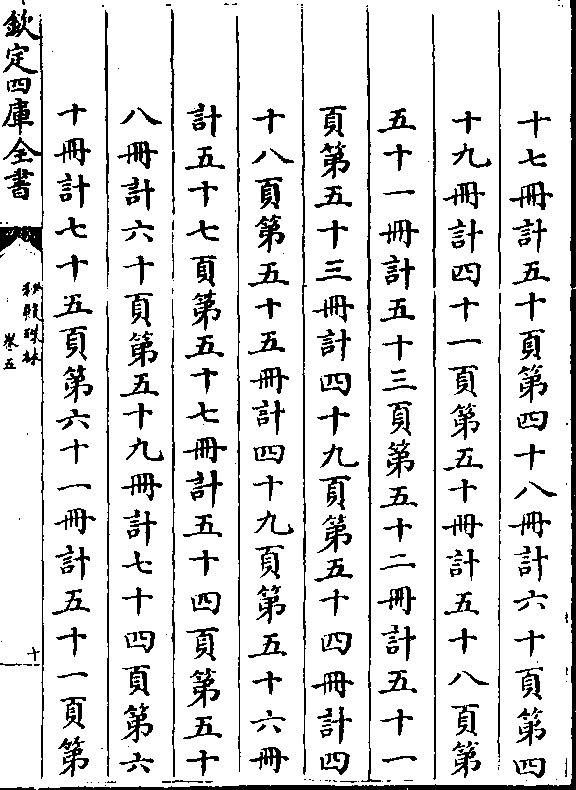 十七冊計五十頁第四十八冊計六十頁第四
十九冊計四十一頁第五十冊計五十八頁第
五十一冊計五十三頁第五十二冊計五十一
頁第五十三冊計四十九頁第五十四冊計四
十八頁第五十五冊計四十九頁第五十六冊
計五十七頁第五十七冊計五十四頁第五十
八冊計六十頁第五十九冊計七十四頁第六
十冊計七十五頁第六十一冊計五十一頁第
欽定四庫全書
秘殿珠林
卷五
十